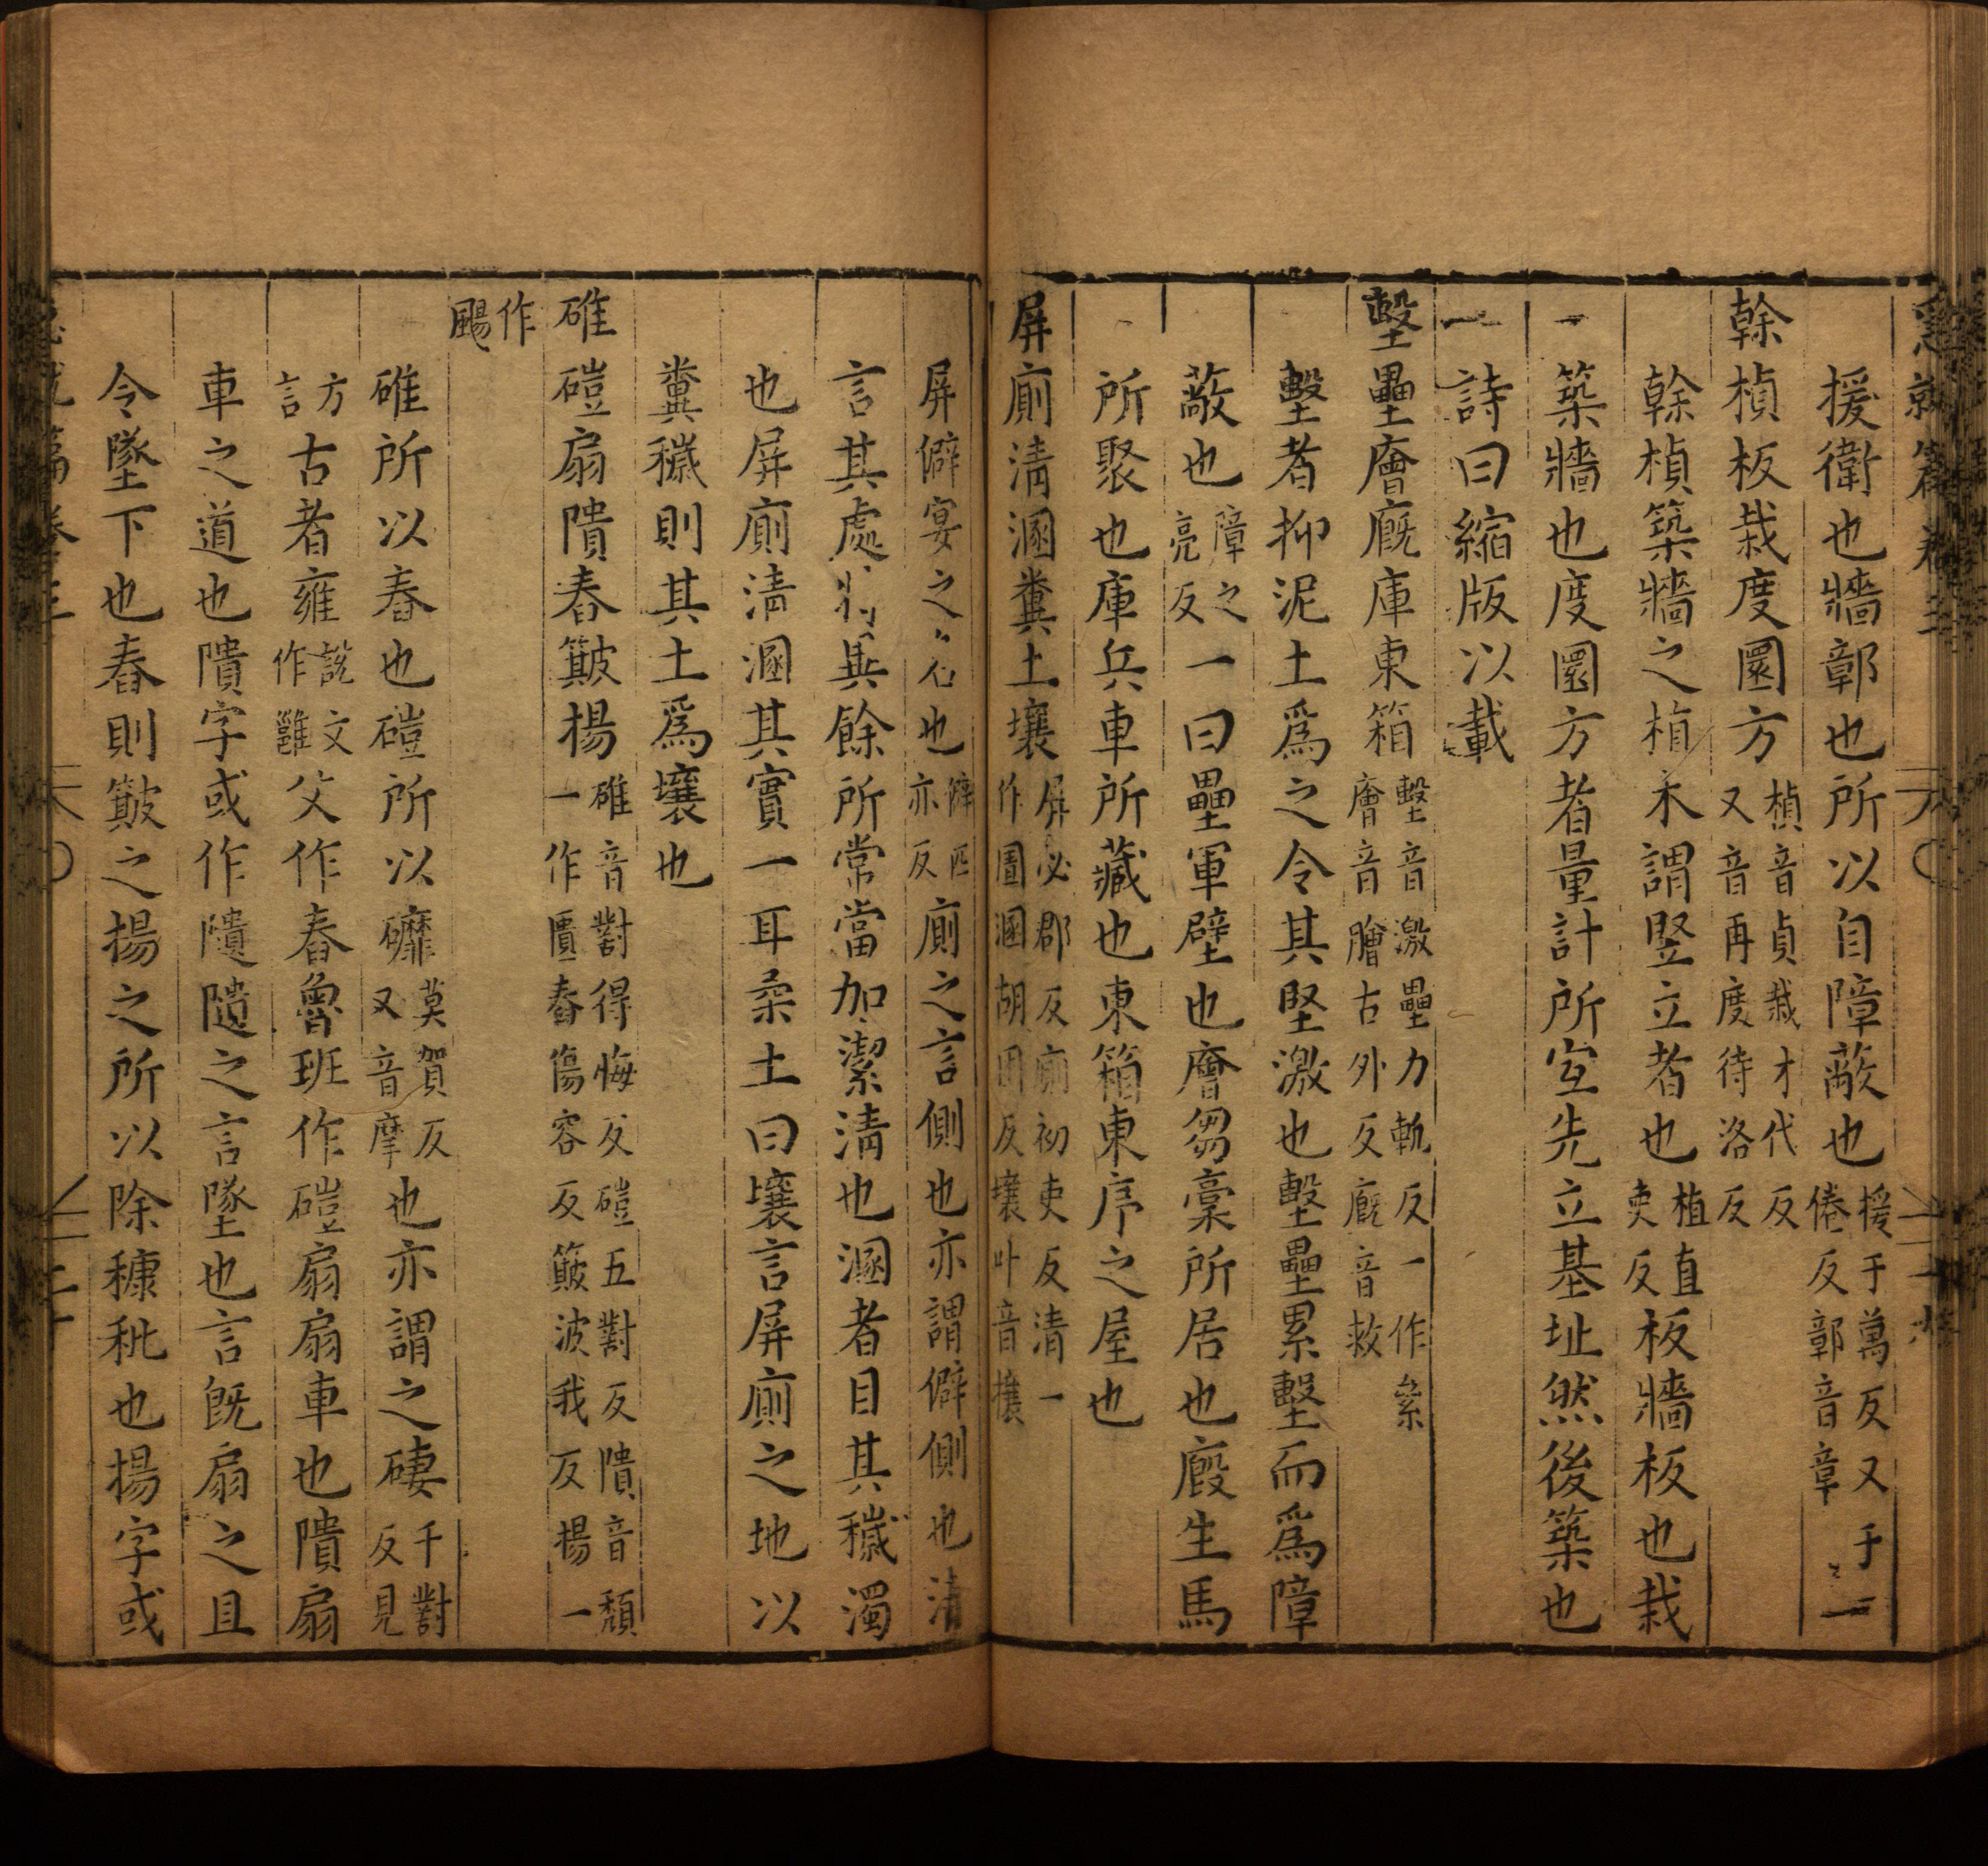 急就篇卷三
援衛也牆鄣也所以自障蔽也援于萬反又于倦反鄣音章一
榦楨板栽度圜方楨音貞栽才代反又音再度待洛反
榦楨築牆之楨木謂豎立者也植直吏反板牆板也栽
一築牆也度圜方者量計所宜先立基址然後築也
一詩曰縮版以載
墼壘廥廐庫東箱墼音激壘力軌反一作絫廥音膾古外反廐音救
墼者抑泥土爲之令其堅激也墼壘累墼而爲障
蔽也障之亮反一曰壘軍壁也廥芻稾所居也廄生馬
所聚也庫兵車所藏也東箱東序之屋也
屏廁清溷糞土壤屏必郢反廁初吏反清一作圊溷胡困反壤叶音攘
屏僻宴之名也僻匹亦反廁之言側也亦謂僻側也清
言其處特異餘所常當加潔清也溷者目其穢濁
也屏廁清溷其實一耳柔土曰壤言屏廁之地以
糞穢則其土爲壤也
碓磑扇隤舂簸揚碓音對得悔反磑五對反隤音頹一作匱舂傷容反簸波我反揚一
作颺
碓所以舂也磑所以䃺莫賀反又音摩也亦謂之䃀千對反見
方言古者雍說文作雝父作舂魯班作磑扇扇車也隤扇
車之道也隤字或作隤隤之言墜也言既扇之且
令墜下也舂則簸之揚之所以除穅秕也揚字或
急就篇卷三